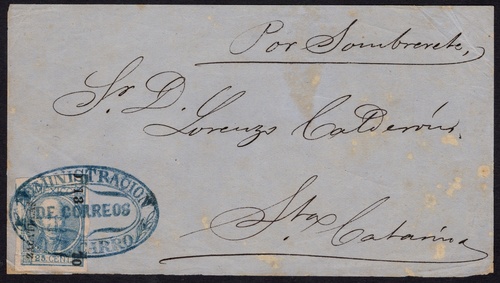 Por Sombrerete,
Sr. D.
Lorenzo Calderón.
Sta Catarina
ADMINISTRACION
DE CORREOS
25 CENT